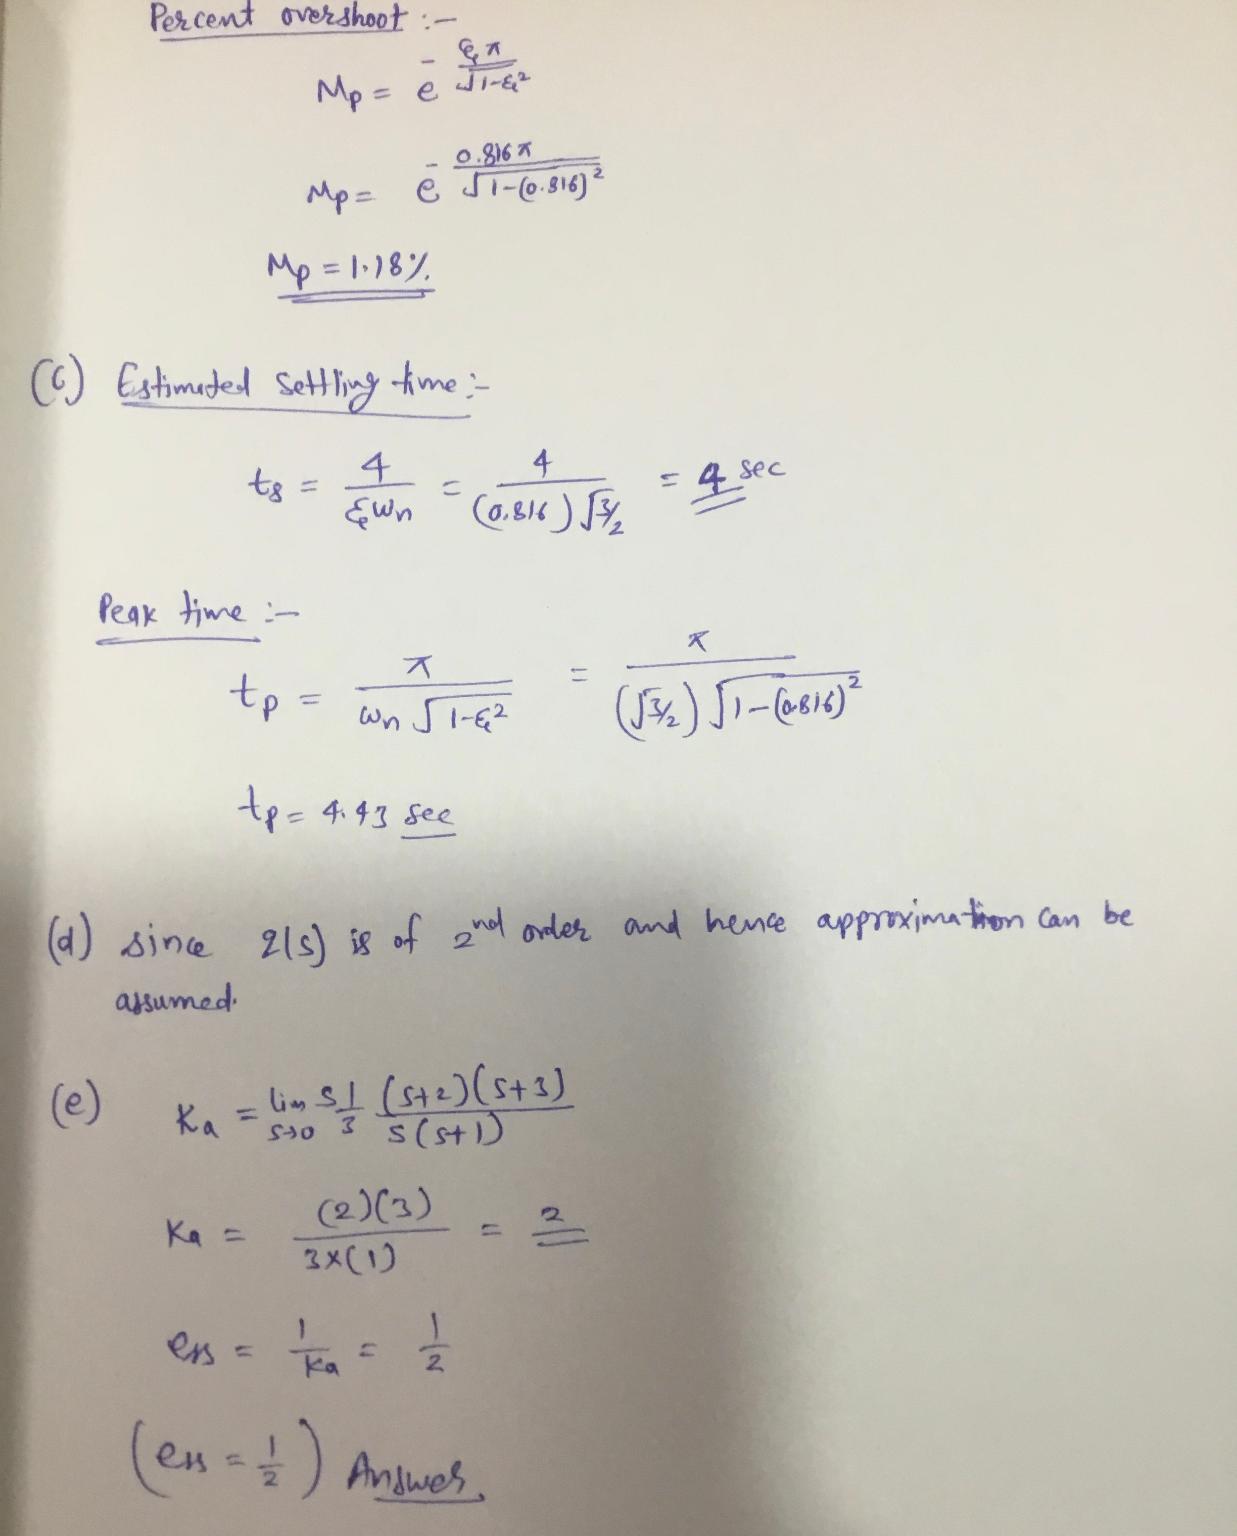 Percent overshoot :-
Mp = e^(-ξπ/√(1-ξ²))
Mp = e^(-0.816π/√(1-(0.816)²))
Mp = 1.18%
(c) Estimated settling time :-
ts = 4/(ξωn) = 4/((0.816)√(3/2)) = 4 sec
Peak time :-
tp = π/(ωn√(1-ξ²)) = π/((√(3/2))√(1-(0.816)²))
tp = 4.43 sec
(d) since 2(s) is of 2nd order and hence approximation can be
assumed.
(e) Ka = lim s→0 s 1/3 (s+2)(s+3)/(s(s+1))
Ka = (2)(3)/(3×(1)) = 2
ess = 1/Ka = 1/2
(ess = 1/2) Answer